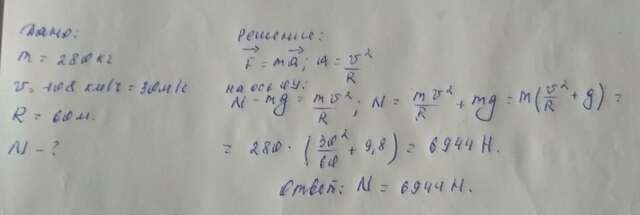 Дано:
m = 280 кг
v = 108 км/ч = 30 м/с
R = 60 м.
N - ?
Решение:
F = ma; a = v²/R
на ось OY:
N - mg = mv²/R; N = mv²/R + mg = m(v²/R + g) =
= 280 · (30²/60 + 9,8) = 6944 Н.
Ответ: N = 6944 Н.